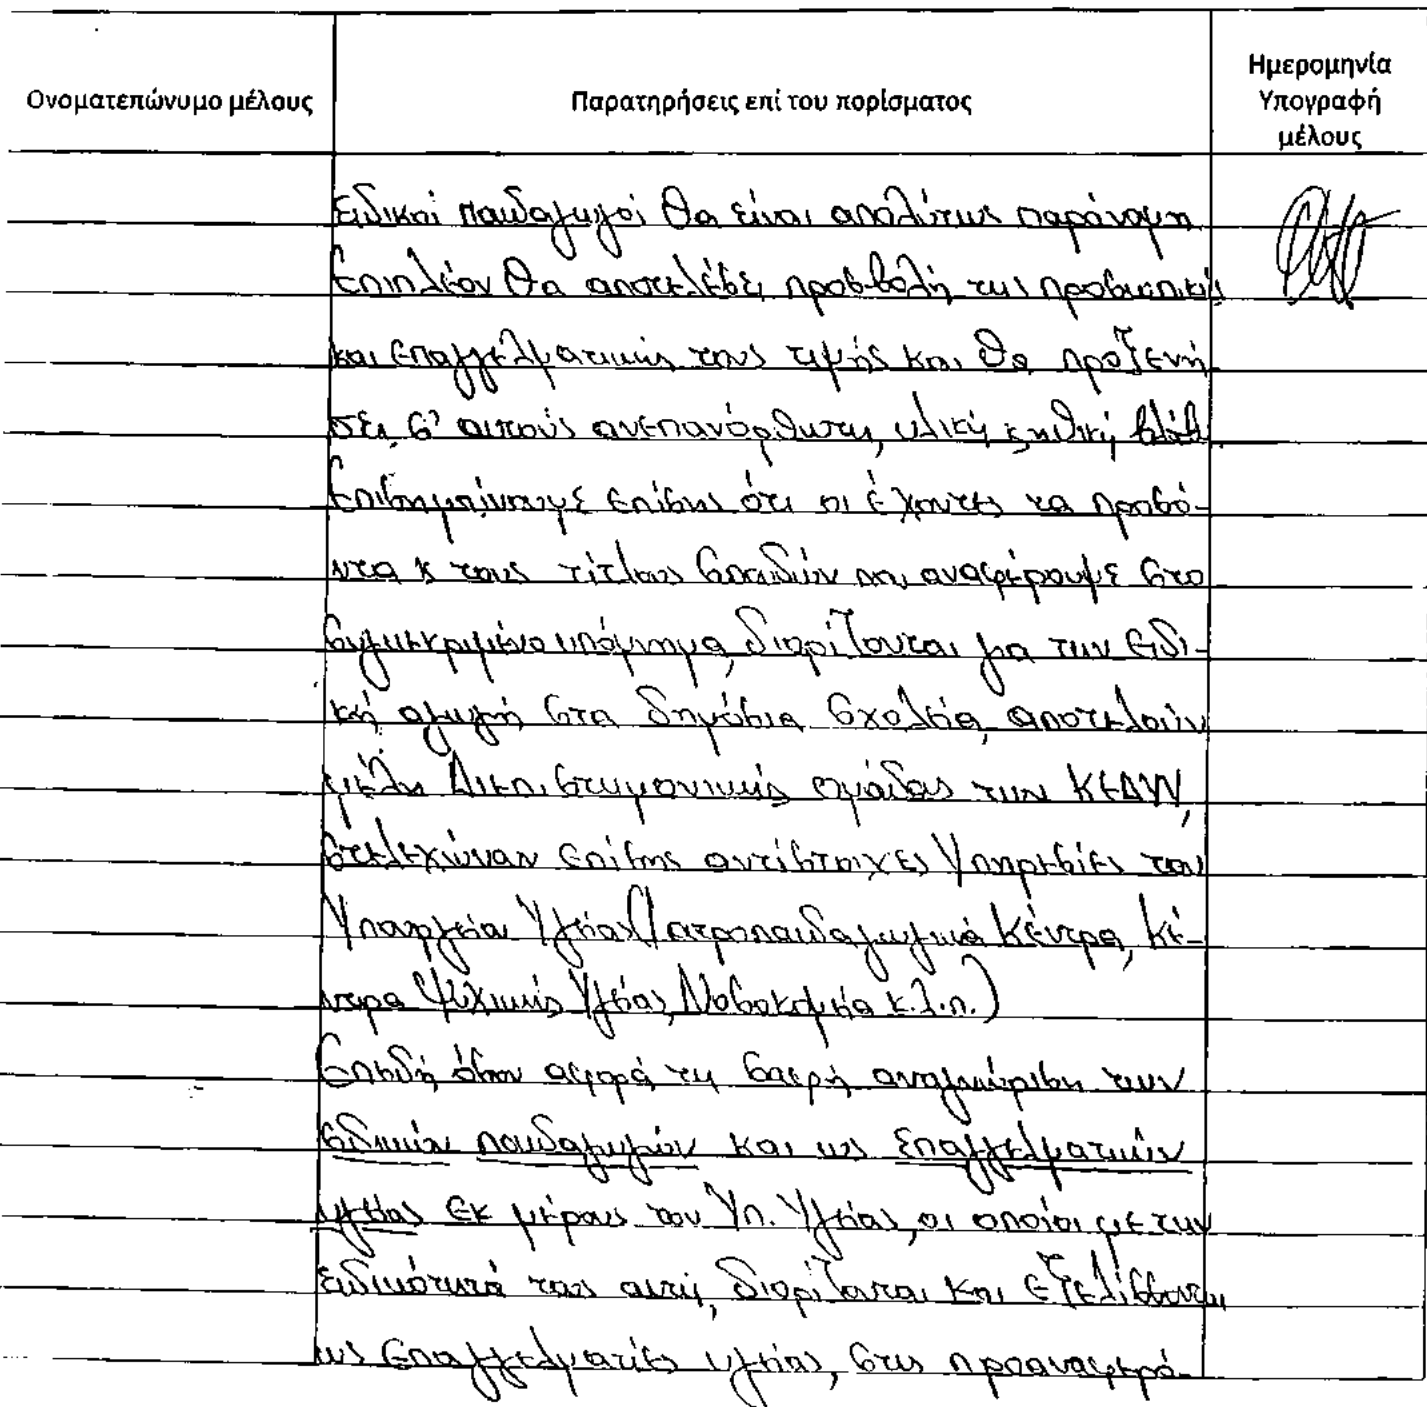 Ονοματεπώνυμο μέλους
Παρατηρήσεις επί του πορίσματος
Ημερομηνία
Υπογραφή
μέλους
ειδικοί παιδαγωγοί θα είναι απολύτως παράνομη
Επιπλέον θα αποτελέσει προσβολή της προσωπικής
και επαγγελματικής τους τιμής και θα προξενή
σει σ' αυτούς ανεπανόρθωτη, υλική κ ηθική βλάβη.
Επισημαίνουμε επίσης ότι οι έχοντες τα προσό-
ντα κ τους τίτλους σπουδών που αναφέρουμε στο
συγκεκριμένο υπόμνημα, διορίζονται για την Ειδι-
κή αγωγή στα δημόσια σχολεία, αποτελούν
μέλη Διεπιστημονικής ομάδας των ΚΕΔΔΥ,
στελεχώνουν επίσης αντίστοιχες Υπηρεσίες του
Υπουργείου Υγείας (Ιατροπαιδαγωγικά Κέντρα, Κέ-
ντρα Ψυχικής Υγείας, Νοσοκομεία κ.λ.π.)
Επειδή όσον αφορά τη σαφή αναγνώριση των
ειδικών παιδαγωγών και ως επαγγελματιών
υγείας εκ μέρους του Υπ. Υγείας, οι οποίοι με την
ειδικότητά τους αυτή, διορίζονται και εξελίσσονται
ως επαγγελματίες υγείας, στις προαναφερό-